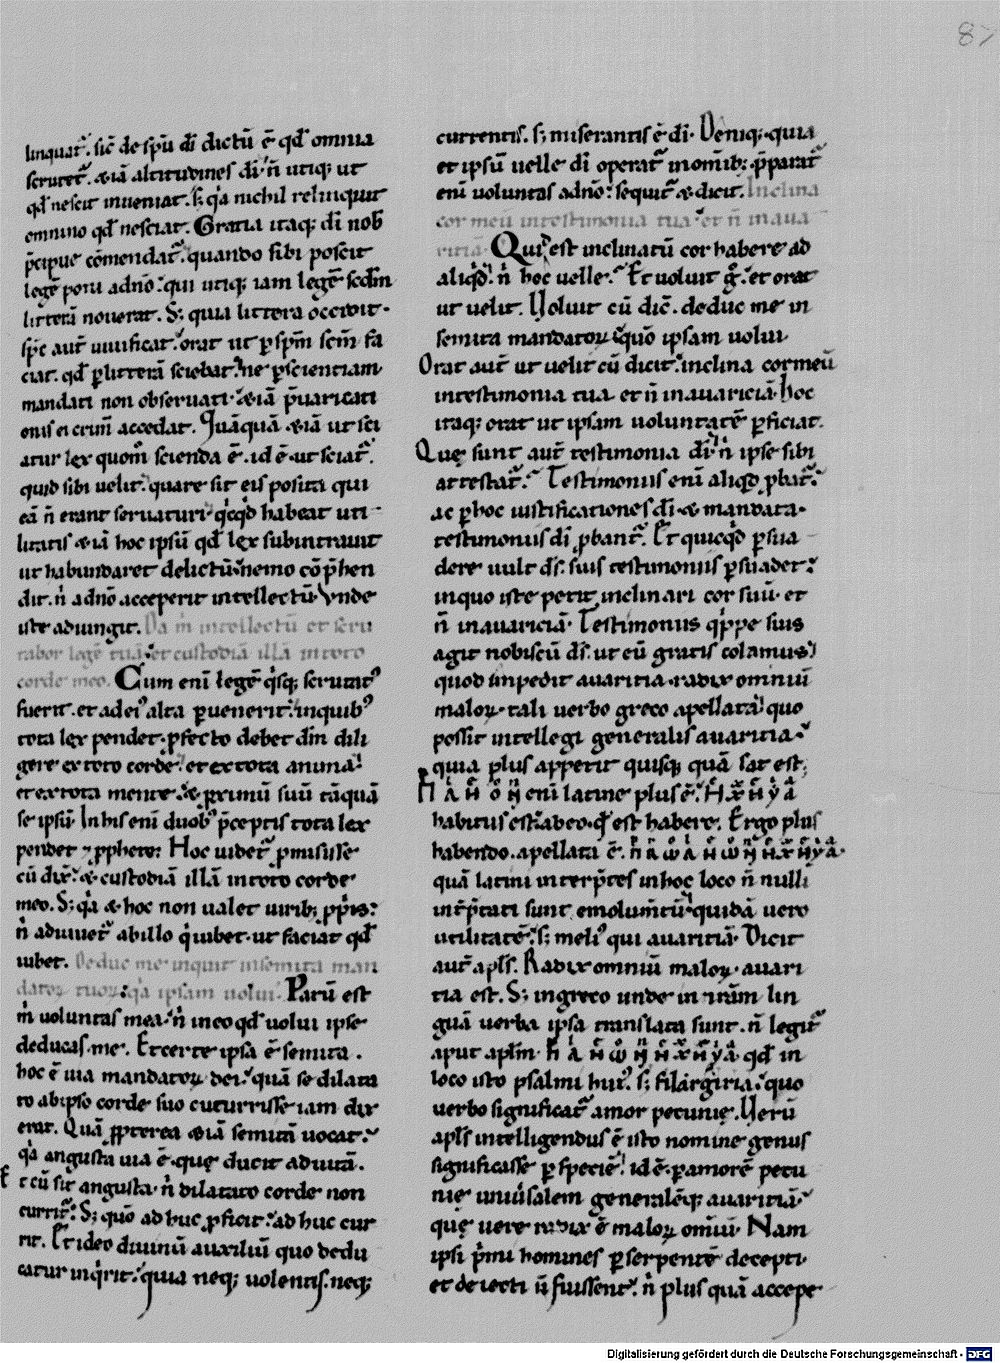 87
linquat᷑. sic̄ de sp̄u dī dictū ē qd̄ omnia
scrutet᷑. &iā altitudines dī. n̄ utiq; ut
qd̄ nescit inueniat. s; q̇a nichil relinquit
omnino qd̄ nesciat. Gratia itaq; dī nob̄
p̄cipue cōmendat᷑. quando sibi poscit
legē poni adnō. qui utiq; iam legē scd̄m
litterā nouerat. S; quia littera occidit.
sp̄c aut̄ uiuificat. orat ut p̲ sp̄m scm̄ fa
ciat. qd̄ p̲litterā sciebat. ne p̲scientiam
mandati non obseruati. &iā p̄uaricati
onis ei crim̄ accedat. Quāquā &iā ut sci
atur lex quom̄ scienda ē. id ē. ut sciat᷑.
quid sibi uelit. quare sit eis posita qui
eā n̄ erant seruaturi. qċqd̄ habeat uti
litatis &iā hoc ipsū qd̄ lex subintrauit
ut habundaret delictū. nemo cōp̄hen
dit. n̄ adnō acceperit intellectū. Vnde
iste adiungit. Da m̄ intellectū et scru
tabor legē tuā. et custodiā illā intoto
corde meo. Cum enī legē qṡq; scrutat᷒
fuerit. et adei᷒ alta p̲uenerit. inquib᷒
tota lex pendet. p̲fecto debet dīm dili
gere extoto corde. et extota anima.
et extota mente. & p̲ximū suū tāquā
se ipsū. Inhis enī duob᷒ p̄ceptis tota lex
pendet ⁊ p̲phete. Hoc uidet᷑ p̲misisse
cū dix̄. & custodiā illā intoto corde
meo. S; q̇a & hoc non ualet uirib; p̲p̲ris.
n̄ adiuuet᷑ abillo q̇ iubet. ut faciat qd̄
iubet. Deduc me inquit insemita man
datoꝝ tuoꝝ. q̇a ipsam uolui. Parū est
m̄ uoluntas mea. n̄ in eo qd̄ uolui ipse
deducas me. Et certe ipsa ē semita.
hoc ē uia mandatoꝝ dei. quā se dilata
to abipso corde suo cucurrisse iam dix
erat. Quā p̲p̲terea &iā semitā uocat᷑.
q̇a angusta uia ē. que̜ ducit aduitā.
Et cū sit angusta. n̄ dilatato corde non
currit᷑. S; quō adhuc p̲ficit. adhuc cur
rit. Et ideo diuinū auxiliū quo dedu
catur inqrit. quia neq; uolentis. neq;
currentis. s; miserantis ē dī. Deniq; quia
et ipsū uelle dī operat᷑ inomib;. p̄parat᷑
enī uoluntas adnō. sequit᷑ & dicit. Inclina
cor meū intestimonia tua. et n̄ inaua
ritiā. Quid est inclinatū cor habere ad
aliqd̄. n̄ hoc uelle. Et uoluit g̊. et orat
ut uelit. Uoluit cū dic̄. deduc me in
semita mandatoꝝ. quō ipsam uolui.
Orat aut̄ ut uelit cū dicit. inclina cormeū
intestimonia tua et n̄ inauariciā. Hoc
itaq; orat ut ipsam uoluntatē p̲ficiat.
Que̜ sunt aut̄ testimonia dī. n̄ ipse sibi
attestat᷑. Testimoniis enī aliqd̄ p̲bat᷑.
ac p̲hoc iustificationes dī. & mandata
testimoniis dī p̲bant᷑. Et quicqd̄ p̲sua
dere uult d̄s. suis testimoniis p̲suadet.
inquo iste petit inclinari cor suū. et
n̄ inauariciā. Testimoniis qṗpe suis
agit nobiscū d̄s. ut eū gratis colamus.
quod impedit auaritia. radix omniū
maloꝝ. tali uerbo greco apellata. quo
possit intellegi generalis auaritia.
quia plus appetit quisq; quā sat est.
enī latine plus ē.
habitus est. abeo qd̄ est habere. Ergo plus
habendo. apellata ē.
quā latini interp̄tes inhoc loco n̄nulli
int̄p̄tati sunt emolum̄tū. quidā uero
utilitatē. s; meli᷒ qui auaritiā. Dicit
aut̄ apl̄s. Radix omniū maloꝝ. auari
tia est. S; ingreco unde in nrām lin
guā uerba ipsa translata sunt. n̄ legit᷑
aput apl̄m. qd̄ in
loco isto psalmi hui᷒. s; filargiria. quo
uerbo significat᷑ amor pecunie̜. Uerū
apl̄s intelligendus ē isto nomine genus
significasse p̲ speciē. id ē. p̲amorē pecu
nie̜ uniu̇salem generalēq; auaritiā.
que̜ uere radix ē maloꝝ omīū. Nam
ipsi p̄mi homines p̲serpentē decepti.
et deiecti n̄ fuissent. n̄ plus quā accepe
Digitalisierung gefördert durch die Deutsche Forschungsgemeinschaft - DFG